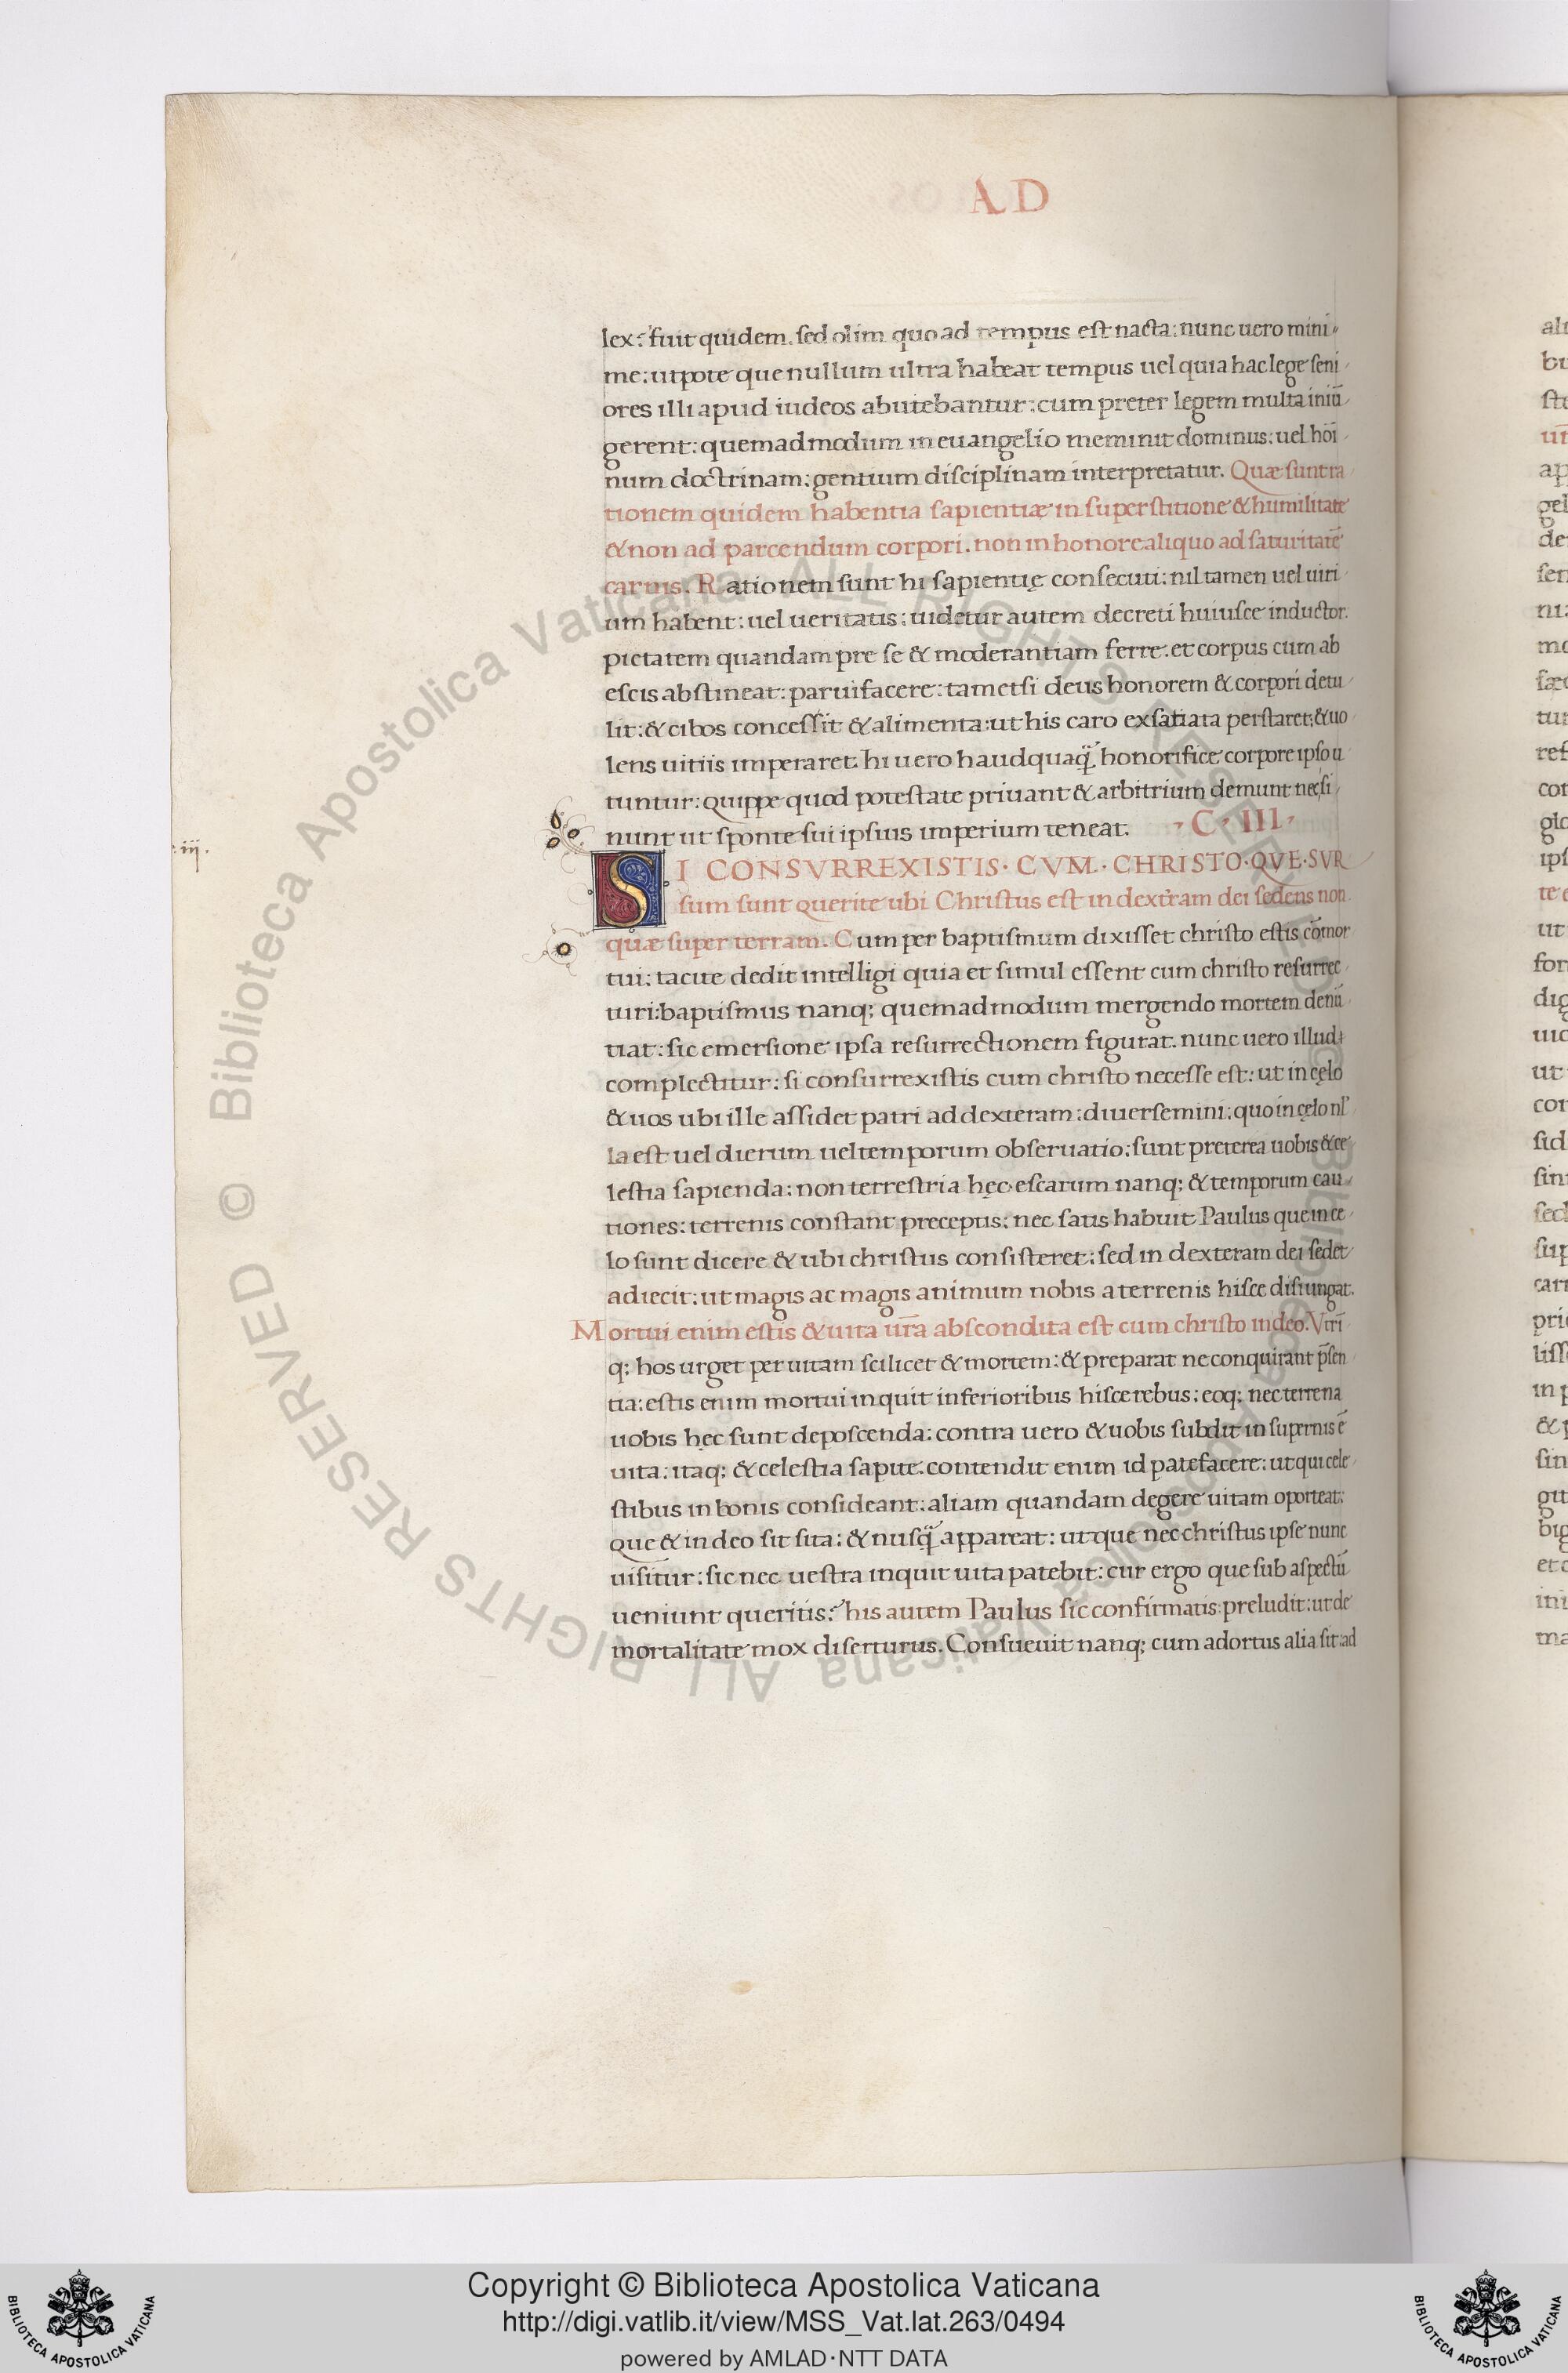 AD
lex: fuit quidem. sed olim quo ad tempus est nacta: nunc uero mini
me: utpote que nullum ultra habeat tempus uel quia hac lege seni
ores illi apud iudeos abutebantur: cum preter legem multa iniũ
gerent: quemadmodum in euangelio meminit dominus: uel hoĩ
num doctrinam: gentium disciplinam interpretatur. Quæ sunt ra
tionem quidem habentia sapientiæ in superstitione & humilitate
& non ad parcendum corpori. non in honore aliquo ad saturitatẽ
carnis. Rationem sunt hi sapientię consecuti: nil tamen uel uiri
um habent: uel ueritatis: uidetur autem decreti huiusce inductor.
pietatem quandam pre se & moderantiam ferre. et corpus cum ab
escis abstineat: paruifacere: tametsi deus honorem & corpori detu
lit: & cibos concessit & alimenta: ut his caro exsatiata perstaret: & uo
lens uitiis imperaret. hi uero haudquaq̃ honorifice corpore ipso u
tuntur: quippe quod potestate priuant & arbitrium demunt nec si
nunt ut sponte sui ipsius imperium teneat. C · III ·
.iij.
SI CONSVRREXISTIS · CVM · CHRISTO · QVE · SVR
sum sunt querite ubi Christus est in dexteram dei sedens non
quæ super terram. Cum per baptismum dixisset christo estis cõmor
tui: tacite dedit intelligi quia et simul essent cum christo resurrec
turi: baptismus nanq; quemadmodum mergendo mortem denũ
tiat: sic emersione ipsa resurrectionem figurat. nunc uero illud
complectitur: si consurrexistis cum christo necesse est: ut in cęlo
& uos ubi ille assidet patri ad dexteram: diuersemini: quo in cęlo nl'
la est uel dierum uel temporum obseruatio: sunt preterea uobis & ce
lestia sapienda: non terrestria hęc escarum nanq; & temporum cau
tiones: terrenis constant preceptis: nec satis habuit Paulus que in ce
lo sunt dicere & ubi christus consisteret: sed in dexteram dei sedet
adiecit: ut magis ac magis animum nobis a terrenis hisce disiungat.
Mortui enim estis & uita ur̃a abscondita est cum christo in deo. Vtri
q; hos urget per uitam scilicet & mortem: & preparat ne conquirant p̃sen
tia: estis enim mortui inquit inferioribus hisce rebus: eoq; nec terrena
uobis hęc sunt deposcenda: contra uero & uobis subdit in supernis ẽ
uita: itaq; & celestia sapite. contendit enim id patefacere: ut qui cele
stibus in bonis consideant: aliam quandam degere uitam oporteat:
que & in deo sit sita: & nusq̃ appareat: utque nec christus ipse nunc
uisitur: sic nec uestra inquit uita patebit: cur ergo que sub aspectũ
ueniunt queritis: his autem Paulus sic confirmatis: preludit: ut de
mortalitate mox diserturus. Consueuit nanq; cum adortus alia sit: ad
© Biblioteca Apostolica Vaticana ALL RIGHTS RESERVED
Copyright © Biblioteca Apostolica Vaticana
http://digi.vatlib.it/view/MSS_Vat.lat.263/0494
powered by AMLAD·NTT DATA
BIBLIOTECA APOSTOLICA VATICANA
BIBLIOTECA APOSTOLICA VATICANA